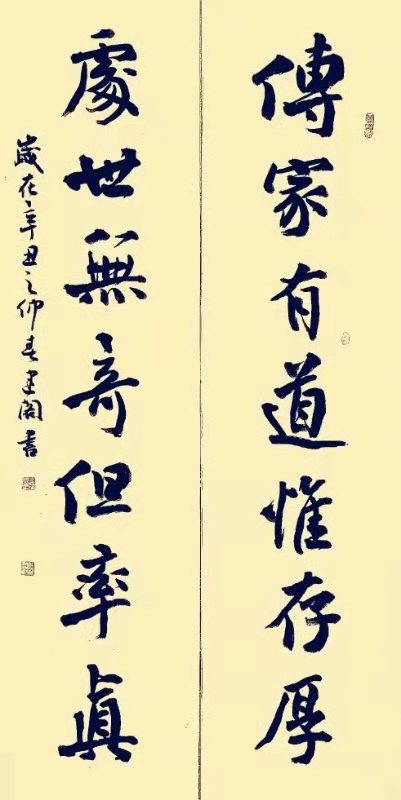 傳家有道惟存厚
處世無奇但率真
歲在辛丑之仲春建閣書